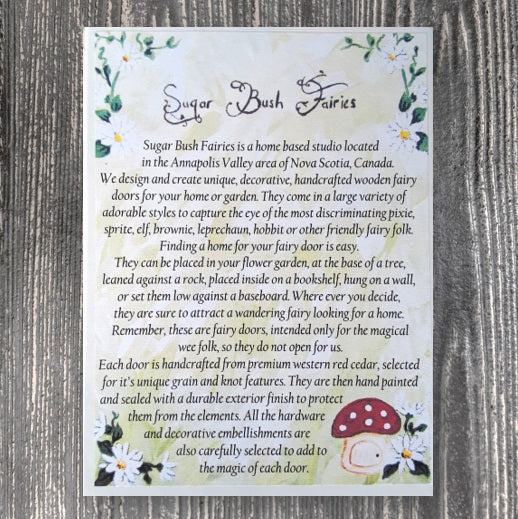 Sugar Bush Fairies
Sugar Bush Fairies is a home based studio located
in the Annapolis Valley area of Nova Scotia, Canada.
We design and create unique, decorative, handcrafted wooden fairy
doors for your home or garden. They come in a large variety of
adorable styles to capture the eye of the most discriminating pixie,
sprite, elf, brownie, leprechaun, hobbit or other friendly fairy folk.
Finding a home for your fairy door is easy.
They can be placed in your flower garden, at the base of a tree,
leaned against a rock, placed inside on a bookshelf, hung on a wall,
or set them low against a baseboard. Where ever you decide,
they are sure to attract a wandering fairy looking for a home.
Remember, these are fairy doors, intended only for the magical
wee folk, so they do not open for us.
Each door is handcrafted from premium western red cedar, selected
for it's unique grain and knot features. They are then hand painted
and sealed with a durable exterior finish to protect
them from the elements. All the hardware
and decorative embellishments are
also carefully selected to add to
the magic of each door.